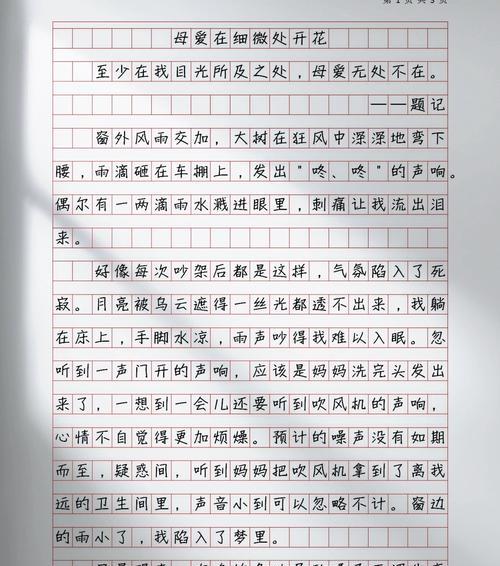 第 1 页 共 3 页
母爱在细微处开花
至少在我目光所及之处，母爱无处不在。
——题记
窗外风雨交加，大树在狂风中深深地弯下
腰，雨滴砸在车棚上，发出"咚、咚"的声响。
偶尔有一两滴雨水溅进眼里，刺痛让我流出泪
来。
好像每次吵架后都是这样，气氛陷入了死
寂。月亮被乌云遮得一丝光都透不出来，我躺
在床上，手脚冰凉，雨声吵得我难以入眠。忽
听到一声门开的声响，应该是妈妈洗完头发出
来了，一想到一会儿还要听到吹风机的声响，
心情不自觉得更加烦燥。预计的噪声没有如期
而至，疑惑间，听到妈妈把吹风机拿到了离我
远的卫生间里，声音小到可以忽略不计。窗边
的雨小了，我陷入了梦里。